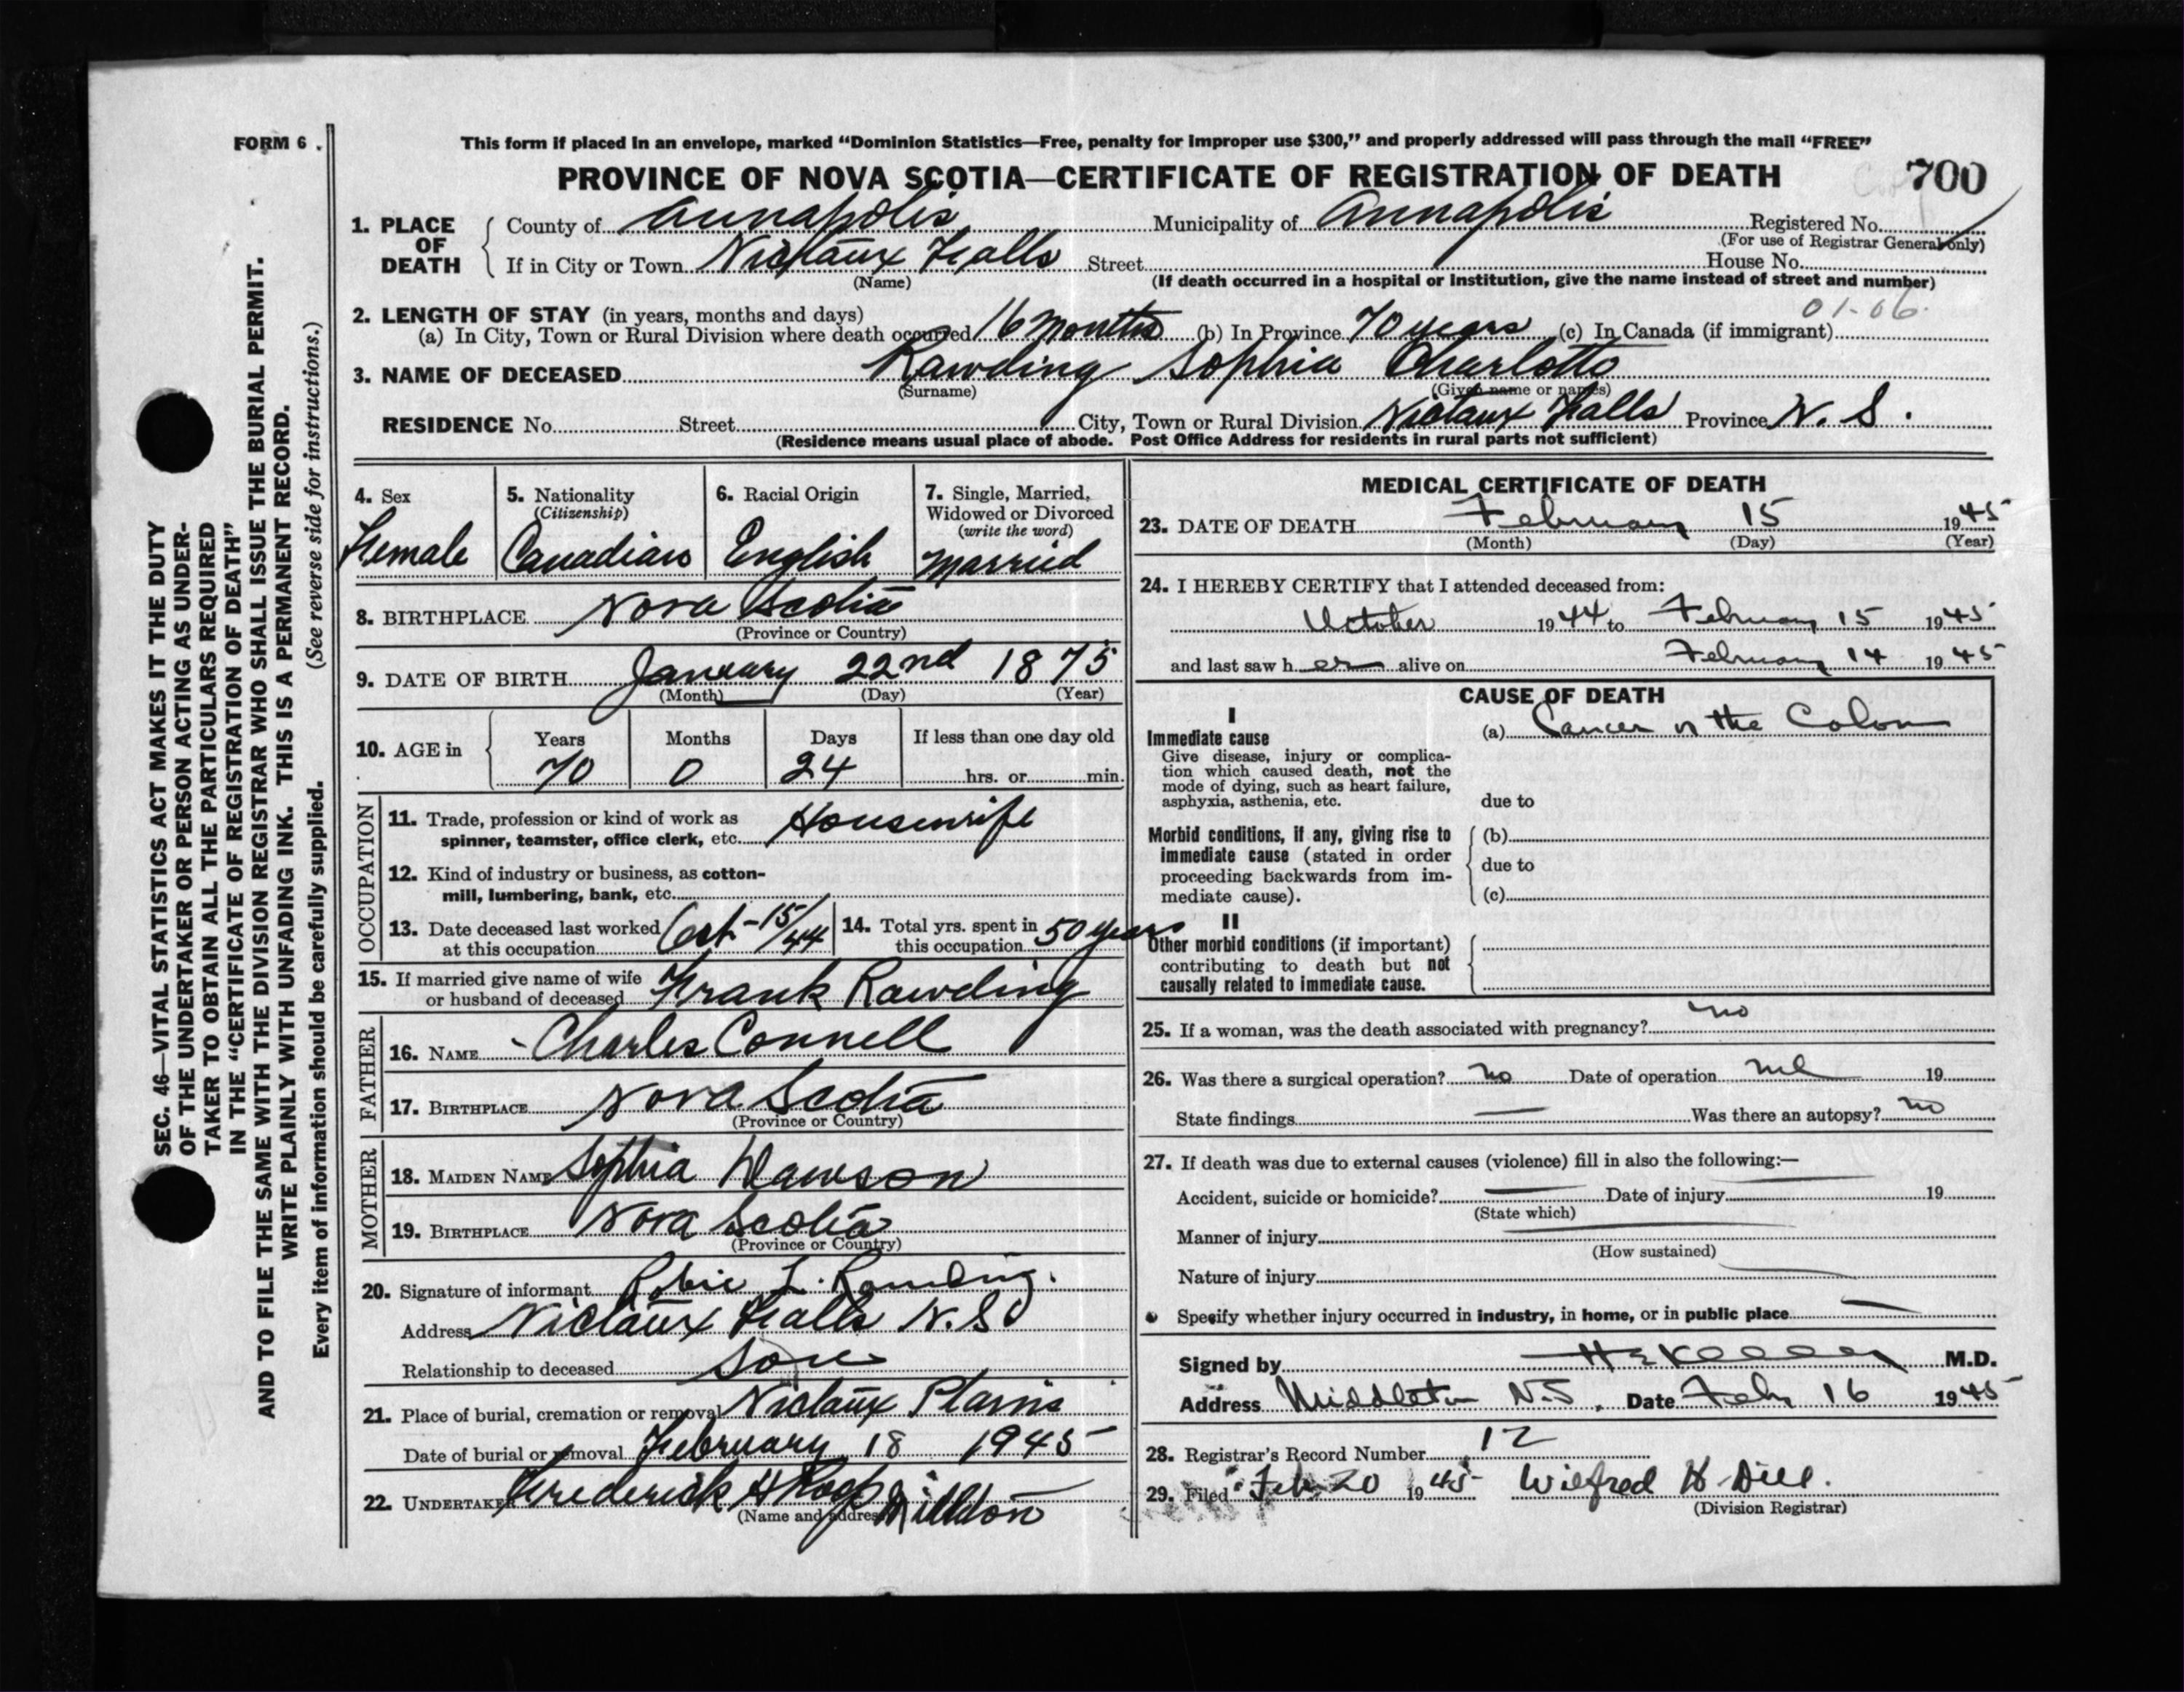 FORM 6 .
This form if placed in an envelope, marked “Dominion Statistics—Free, penalty for improper use $300,” and properly addressed will pass through the mail “FREE”
PROVINCE OF NOVA SCOTIA—CERTIFICATE OF REGISTRATION OF DEATH 700
1. PLACE OF DEATH
County of Annapolis Municipality of Annapolis Registered No.
(For use of Registrar General only)
If in City or Town Nictaux Falls Street House No.
(Name) (If death occurred in a hospital or institution, give the name instead of street and number)
01-06.
2. LENGTH OF STAY (in years, months and days)
(a) In City, Town or Rural Division where death occurred 16 months (b) In Province 70 years (c) In Canada (if immigrant)
3. NAME OF DECEASED Rawding Sophia Charlotte
(Surname) (Given name or names)
RESIDENCE No. Street City, Town or Rural Division Nictaux Falls Province N. S.
(Residence means usual place of abode. Post Office Address for residents in rural parts not sufficient)
4. Sex
Female
5. Nationality
(Citizenship)
Canadian
6. Racial Origin
English
7. Single, Married, Widowed or Divorced
(write the word)
Married
8. BIRTHPLACE Nova Scotia
(Province or Country)
9. DATE OF BIRTH January 22nd 1875
(Month) (Day) (Year)
10. AGE in Years Months Days If less than one day old
70 0 24 hrs. or min.
OCCUPATION
11. Trade, profession or kind of work as
spinner, teamster, office clerk, etc. Housewife
12. Kind of industry or business, as cotton-
mill, lumbering, bank, etc.
13. Date deceased last worked
at this occupation Oct-15/44
14. Total yrs. spent in
this occupation 50 years
15. If married give name of wife
or husband of deceased Frank Rawding
FATHER
16. NAME Charles Connell
17. BIRTHPLACE Nova Scotia
(Province or Country)
MOTHER
18. MAIDEN NAME Sophia Dawson
19. BIRTHPLACE Nova Scotia
(Province or Country)
20. Signature of informant L. Rawding.
Address Nictaux Falls N.S
Relationship to deceased Son
21. Place of burial, cremation or removal Nictaux Plains
Date of burial or removal February 18 1945
22. UNDERTAKER Frederick H Roop
(Name and address)
MEDICAL CERTIFICATE OF DEATH
23. DATE OF DEATH February 15 1945
(Month) (Day) (Year)
24. I HEREBY CERTIFY that I attended deceased from:
October 1944 to February 15 1945
and last saw her alive on February 14 1945
CAUSE OF DEATH
I
Immediate cause
Give disease, injury or complica-
tion which caused death, not the
mode of dying, such as heart failure,
asphyxia, asthenia, etc.
(a) Cancer of the Colon
due to
Morbid conditions, if any, giving rise to
immediate cause (stated in order
proceeding backwards from im-
mediate cause).
(b)
due to
(c)
II
Other morbid conditions (if important)
contributing to death but not
causally related to immediate cause.
25. If a woman, was the death associated with pregnancy? no
26. Was there a surgical operation? no Date of operation nil 19
State findings — Was there an autopsy? no
27. If death was due to external causes (violence) fill in also the following:—
Accident, suicide or homicide? — Date of injury 19
(State which)
Manner of injury
(How sustained)
Nature of injury
Specify whether injury occurred in industry, in home, or in public place
Signed by M.D.
Address Middleton N.S. Date Feb 16 1945
28. Registrar's Record Number 12
29. Filed Feb 20 1945 Wilfred H Dill.
(Division Registrar)
SEC. 46—VITAL STATISTICS ACT MAKES IT THE DUTY
OF THE UNDERTAKER OR PERSON ACTING AS UNDER-
TAKER TO OBTAIN ALL THE PARTICULARS REQUIRED
IN THE “CERTIFICATE OF REGISTRATION OF DEATH”
AND TO FILE THE SAME WITH THE DIVISION REGISTRAR WHO SHALL ISSUE THE BURIAL PERMIT.
WRITE PLAINLY WITH UNFADING INK. THIS IS A PERMANENT RECORD.
Every item of information should be carefully supplied. (See reverse side for instructions.)